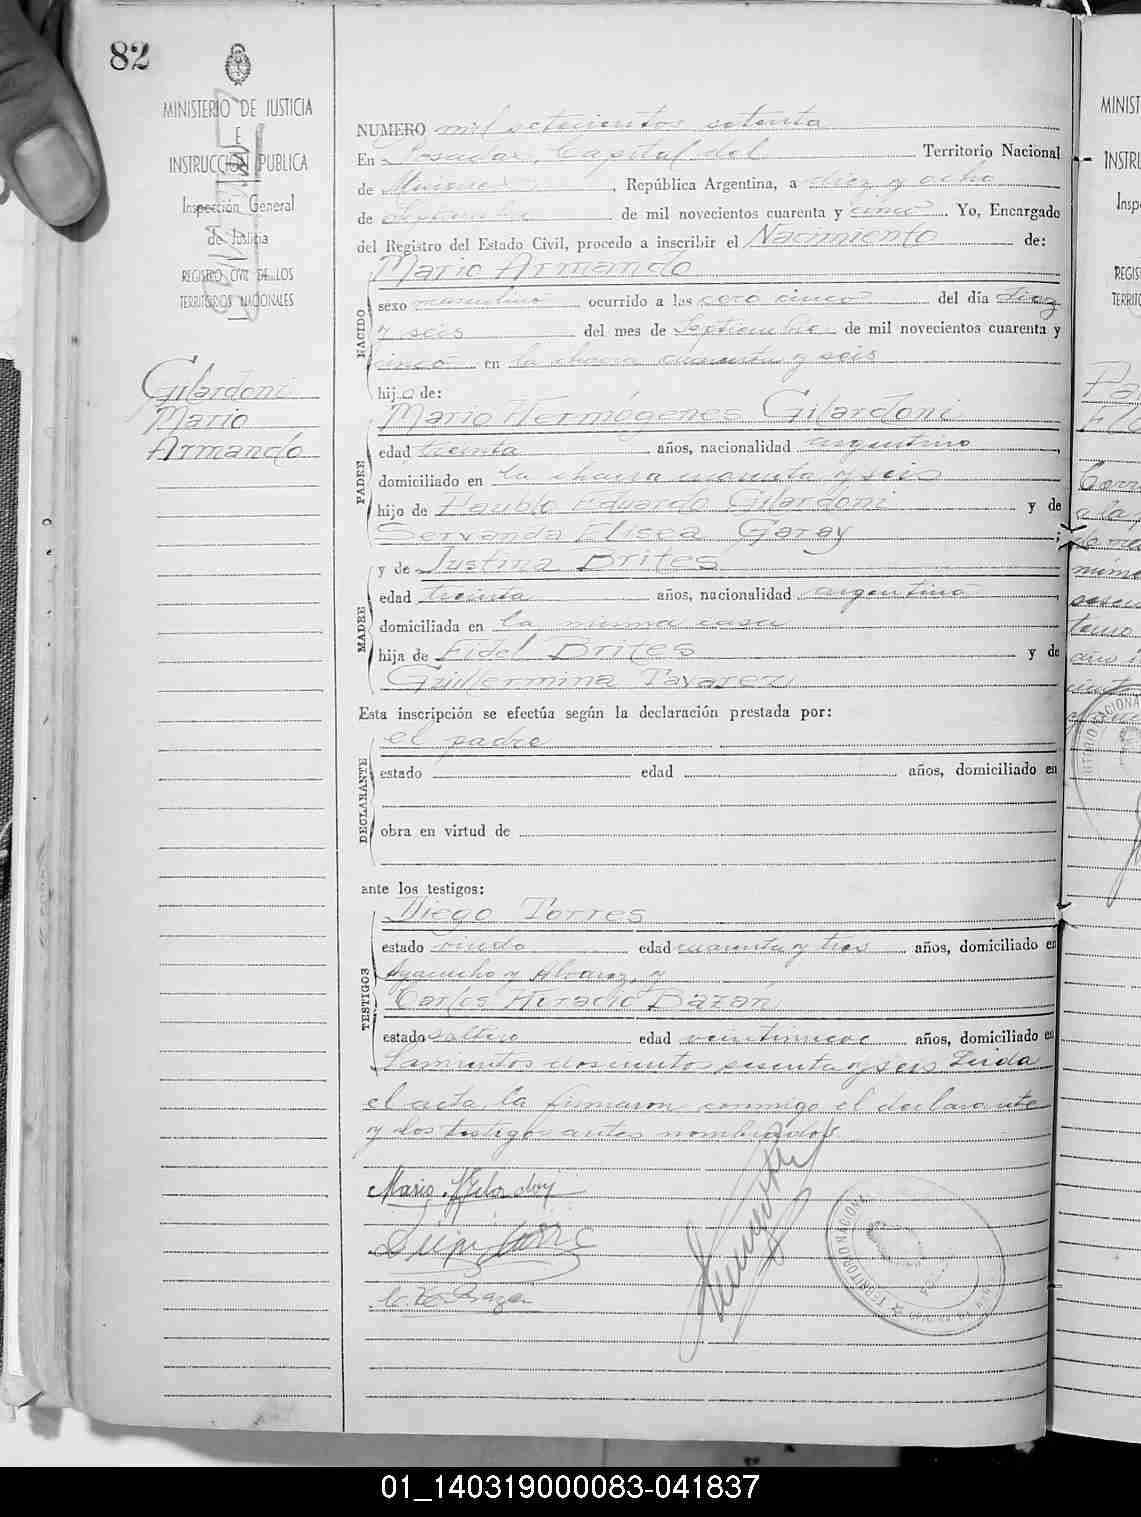 82
MINISTERIO DE JUSTICIA
E
INSTRUCCION PUBLICA
Inspección General
de Justicia
REGISTRO CIVIL DE LOS
TERRITORIOS NACIONALES
Gilardoni
Mario
Armando
NUMERO mil setecientos setenta
En Posadas, Capital del Territorio Nacional
de Misiones, República Argentina, a diez y ocho
de Septiembre de mil novecientos cuarenta y cinco. Yo, Encargado
del Registro del Estado Civil, procedo a inscribir el Nacimiento de:
Mario Armando
NACIDO
sexo masculino ocurrido a las cero cinco del día diez
y seis del mes de Septiembre de mil novecientos cuarenta y
cinco en la chacra cuarenta y seis
hijo de:
Mario Hermógenes Gilardoni
PADRE
edad treinta años, nacionalidad argentino,
domiciliado en la chacra cuarenta y seis
hijo de Paublo Eduardo Gilardoni y de
Servanda Elisea Garay;
y de Justina Brites
MADRE
edad treinta años, nacionalidad argentina,
domiciliada en la misma casa
hija de Fidel Brites y de
Guillermina Tavarez
Esta inscripción se efectúa según la declaración prestada por:
el padre
DECLARANTE
estado edad años, domiciliado en
obra en virtud de
ante los testigos:
Diego Torres
TESTIGOS
estado viudo edad cuarenta y tres años, domiciliado en
Ayacucho y Alvarez, y
Carlos Horacio Bazán
estado soltero edad veintinueve años, domiciliado en
Sarmientos doscientos sesenta y seis Leida
el acta, la firmaron conmigo el declarante
y los testigos antes nombrados.
Mario H Gilardoni
C. H. Bazan
TERRITORIO NACIONAL
MINIST
INSTRU
Insp
REGIS
TERRITO
01_140319000083-041837